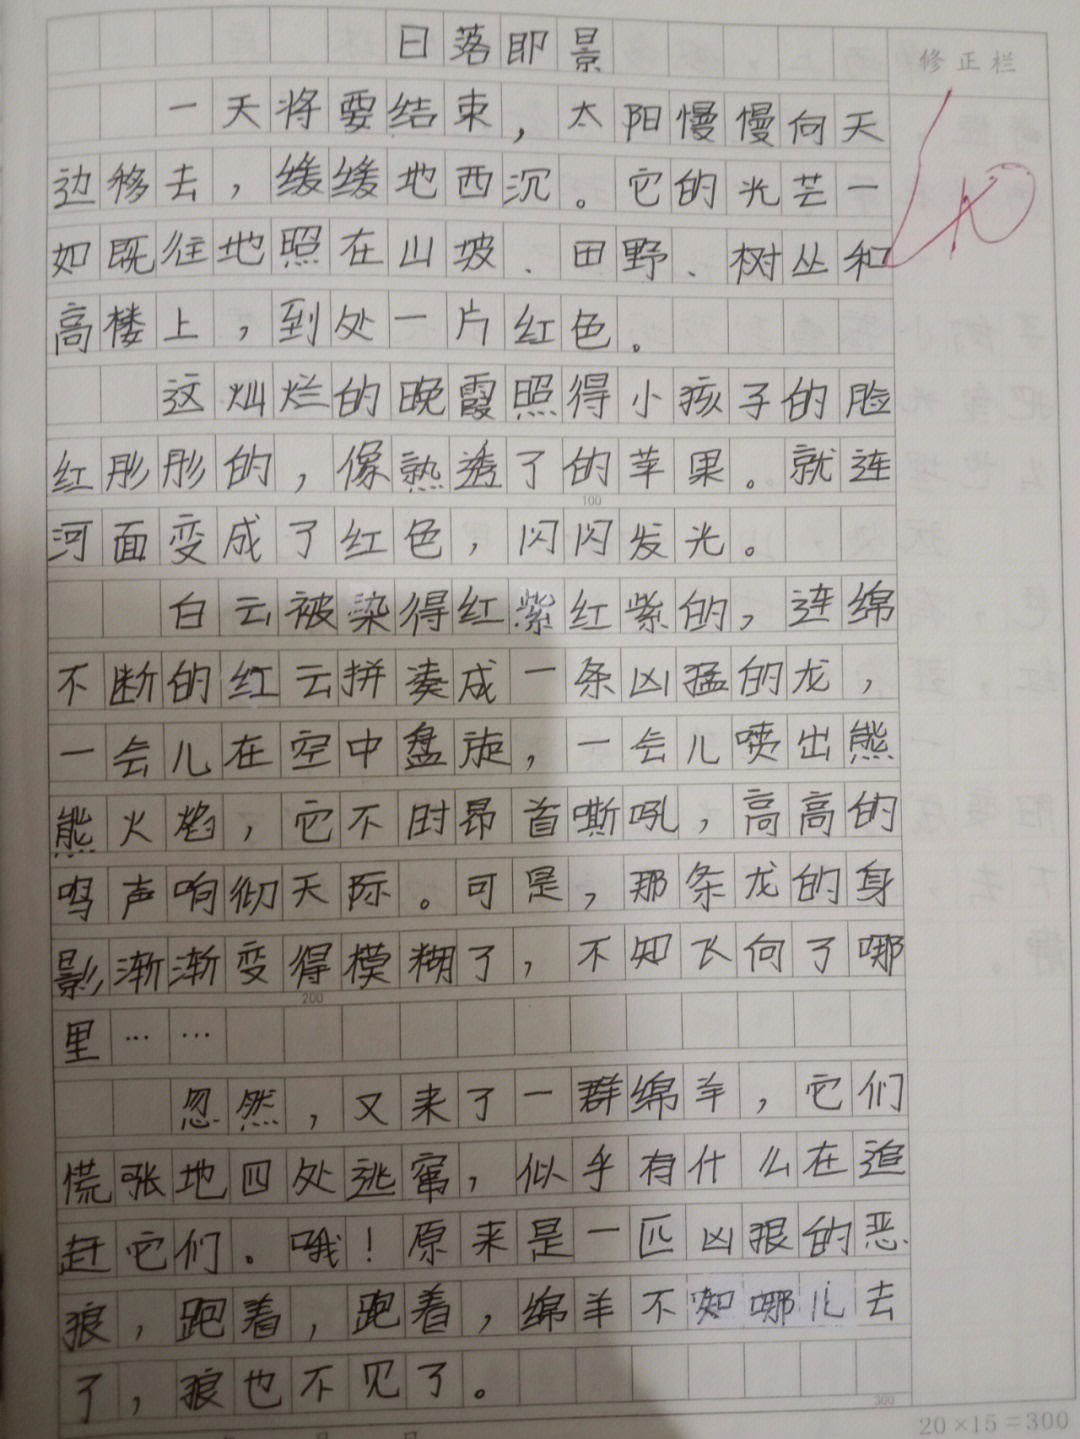 日落即景
修正栏
一天将要结束，太阳慢慢向天
边移去，缓缓地西沉。它的光芒一
如既往地照在山坡、田野、树丛和
高楼上，到处一片红色。
这灿烂的晚霞照得小孩子的脸
红彤彤的，像熟透了的苹果。就连
100
河面变成了红色，闪闪发光。
白云被染得红紫红紫的，连绵
不断的红云拼凑成一条凶猛的龙，
一会儿在空中盘旋，一会儿喷出熊
熊火焰，它不时昂首嘶吼，高高的
鸣声响彻天际。可是，那条龙的身
影渐渐变得模糊了，不知飞向了哪
200
里……
忽然，又来了一群绵羊，它们
慌张地四处逃窜，似乎有什么在追
赶它们。哦！原来是一匹凶狠的恶
狼，跑着，跑着，绵羊不知哪儿去
了，狼也不见了。
300
20×15=300